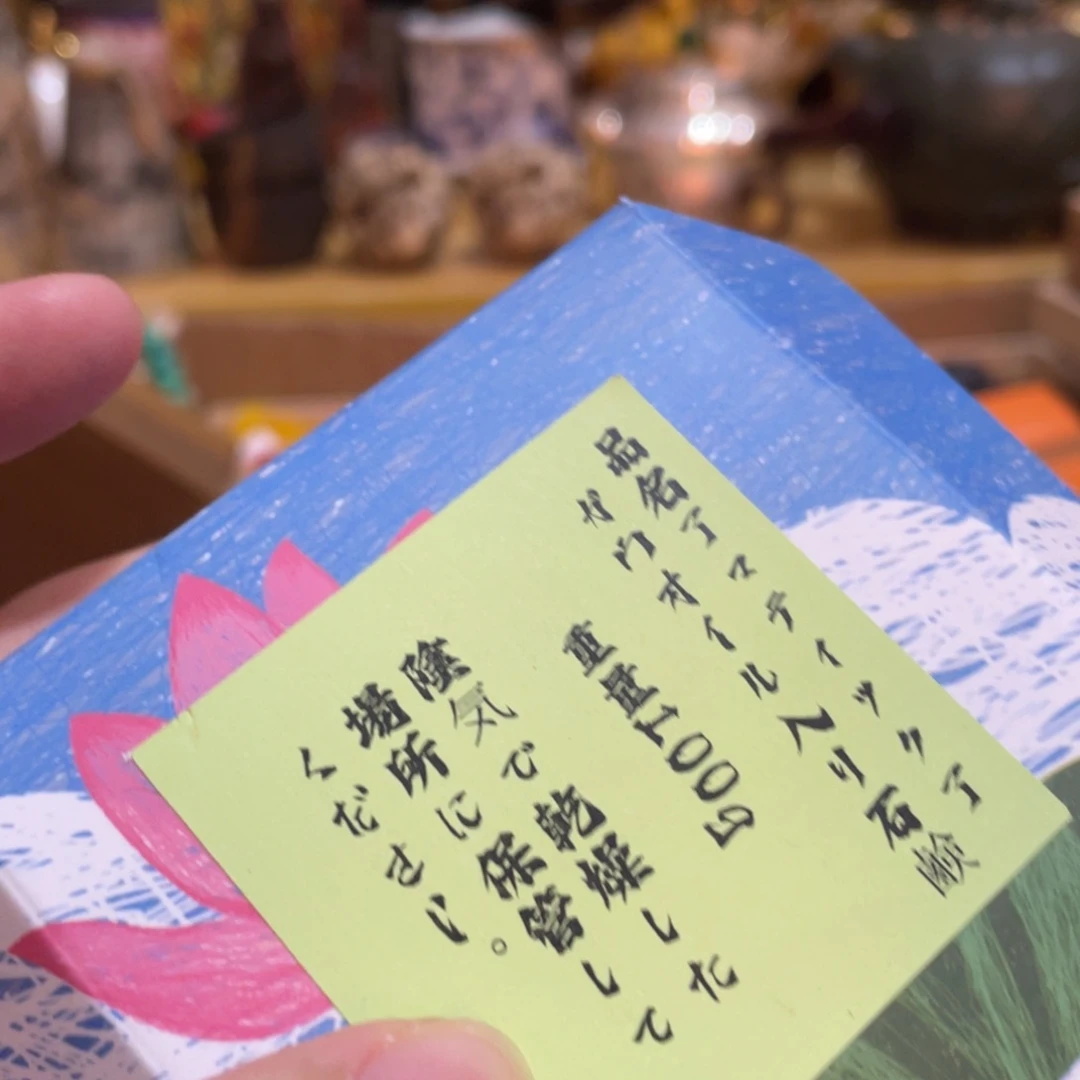 品名アマティックア
ガウオイル入り石鹸
重量100g
陰気で乾燥した
場所に保管して
ください。